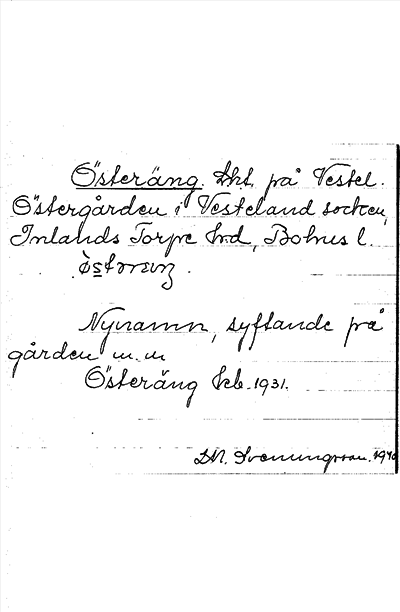 Österäng. lht. på Vestel.
Östergården i Vesteland socken,
Inlands Torpe hrd, Bohus l.
Nynamn, syftande på
gården m. m
Österäng Feb. 1931.
Svenungsson. 1940